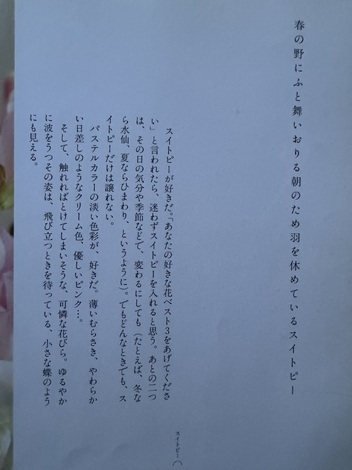 春の野にふと舞いおりる朝のため羽を休めているスイトピー
スイトピーが好きだ。「あなたの好きな花ベスト3をあげてくださ
い」と言われたら、迷わずスイトピーを入れると思う。あとの二つ
は、その日の気分や季節などで、変わるにしても(たとえば、冬な
ら水仙、夏ならひまわり、というように)。でもどんなときでも、ス
イトピーだけは譲れない。
パステルカラーの淡い色彩が、好きだ。薄いむらさき、やわらか
い日差しのようなクリーム色、優しいピンク…。
そして、触れればとけてしまいそうな、可憐な花びら。ゆるやか
に波をうつその姿は、飛び立つときを待っている、小さな蝶のよう
にも見える。
スイトピー